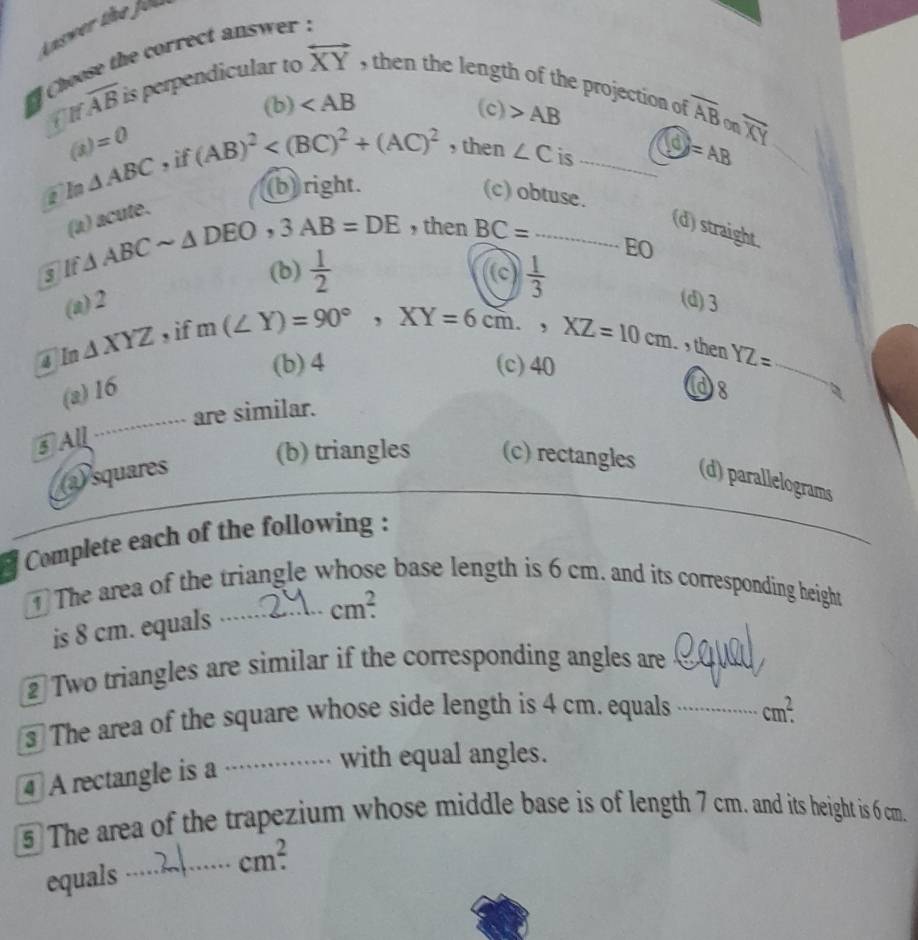 Answer the
1 Choose the correct answer :
1 If AB is perpendicular to XY , then the length of the projection of AB on XY ........
(a) = 0 (b) < AB (c) > AB (d) = AB
2 In Δ ABC , if (AB)² < (BC)² + (AC)² , then ∠ C is ..............
(a) acute. (b) right. (c) obtuse. (d) straight.
3 If Δ ABC ~ Δ DEO , 3 AB = DE , then BC = .............. EO
(a) 2 (b) 1/2 (c) 1/3 (d) 3
4 In Δ XYZ , if m (∠ Y) = 90° , XY = 6 cm. , XZ = 10 cm. , then YZ = ............
(a) 16 (b) 4 (c) 40 (d) 8
5 All .............. are similar.
(a) squares (b) triangles (c) rectangles (d) parallelograms
2 Complete each of the following :
1 The area of the triangle whose base length is 6 cm. and its corresponding height
is 8 cm. equals .......24..... cm².
2 Two triangles are similar if the corresponding angles are equal
3 The area of the square whose side length is 4 cm. equals .............. cm².
4 A rectangle is a ............... with equal angles.
5 The area of the trapezium whose middle base is of length 7 cm. and its height is 6 cm.
equals .....21....... cm².